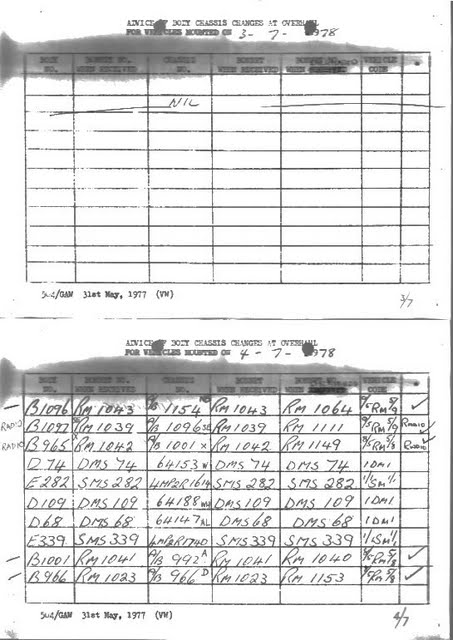 ADVICE OF BODY CHASSIS CHANGES AT OVERHAUL
FOR VEHICLES MOUNTED ON 3-7-1978
BODY NO. BONNET NO. WHEN RECEIVED CHASSIS NO. BONNET WHEN RECEIVED BONNET NO. WHEN VEHICLE COIN
NIL
504/GAW 31st May, 1977 (VW)
3/7
ADVICE OF BODY CHASSIS CHANGES AT OVERHAUL
FOR VEHICLES MOUNTED ON 4-7-1978
BODY NO. BONNET NO. WHEN RECEIVED CHASSIS NO. BONNET WHEN RECEIVED WHEN VEHICLE COIN
– B1096 RM 1043 A/B 1154 RM 1043 RM 1064 RM ✓
RADIO B1097 RM 1039 A/B 1096 RM 1039 RM 1111 RM RADIO
RADIO B965 RM 1042 A/B 1001 X RM 1042 RM 1149 RM RADIO
D74 DMS 74 64153 N DMS 74 DMS 74 1DM1
E282 SMS 282 4MP2R1614 SMS 282 SMS 282 1/SM1
D109 DMS 109 64188 DMS 109 DMS 109 1DM1
D68 DMS 68 64147 AL DMS 68 DMS 68 1DM1
E339 SMS 339 4MP2R1740 SMS 339 SMS 339 1/SM1
– B1001 RM 1041 A/B 992 A RM 1041 RM 1040 RM ✓
– B966 RM 1023 A/B 966 D RM 1023 RM 1153 RM ✓
504/GAW 31st May, 1977 (VW)
4/7